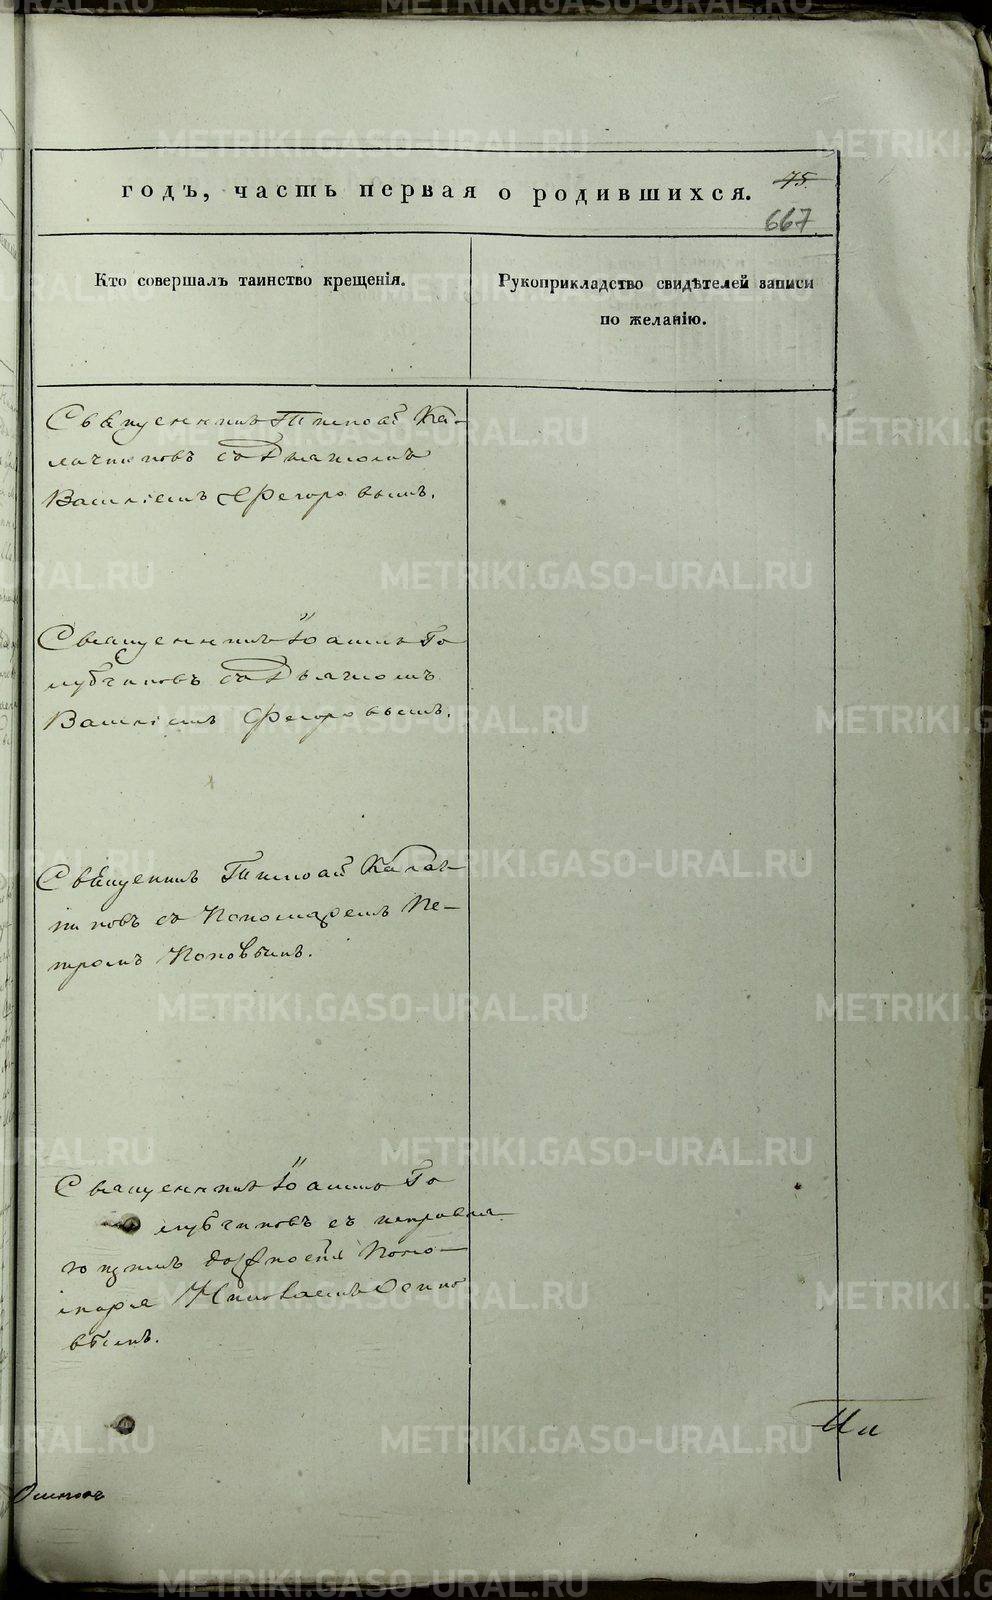 годъ, часть первая о родившихся.
75
667
Кто совершалъ таинство крещенія.
Рукоприкладство свидѣтелей записи
по желанію.
Священникъ Тимоѳей Ка-
лачниковъ съ Дьякомъ
Василіемъ Ѳедоровымъ.
Священникъ Іоаннъ Го
лубчиковъ съ Дьякомъ
Василіемъ Ѳедоровымъ.
Священникъ Тимоѳей Калач-
никовъ съ Пономаремъ Пе-
тромъ Поповымъ.
Священникъ Іоаннъ Го
лубчиковъ съ исправля-
ющимъ должность Поно-
маря Николаемъ Осипо
вымъ.
METRIKI.GASO-URAL.RU